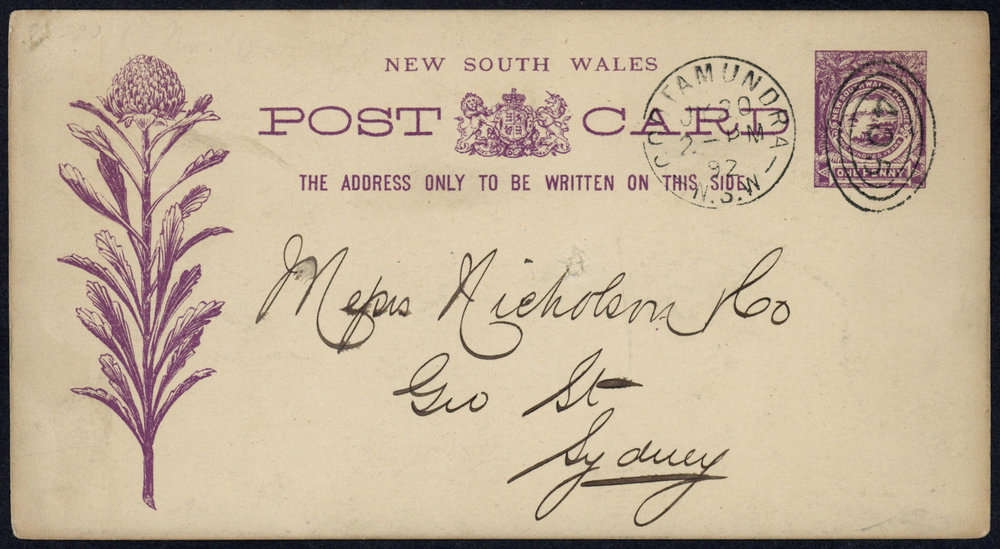 NEW SOUTH WALES
POST CARD
THE ADDRESS ONLY TO BE WRITTEN ON THIS SIDE.
COOTAMUNDRA
JY 20
2 - PM
92
N.S.W
ONE PENNY
Messrs Nicholson & Co
Geo St
Sydney